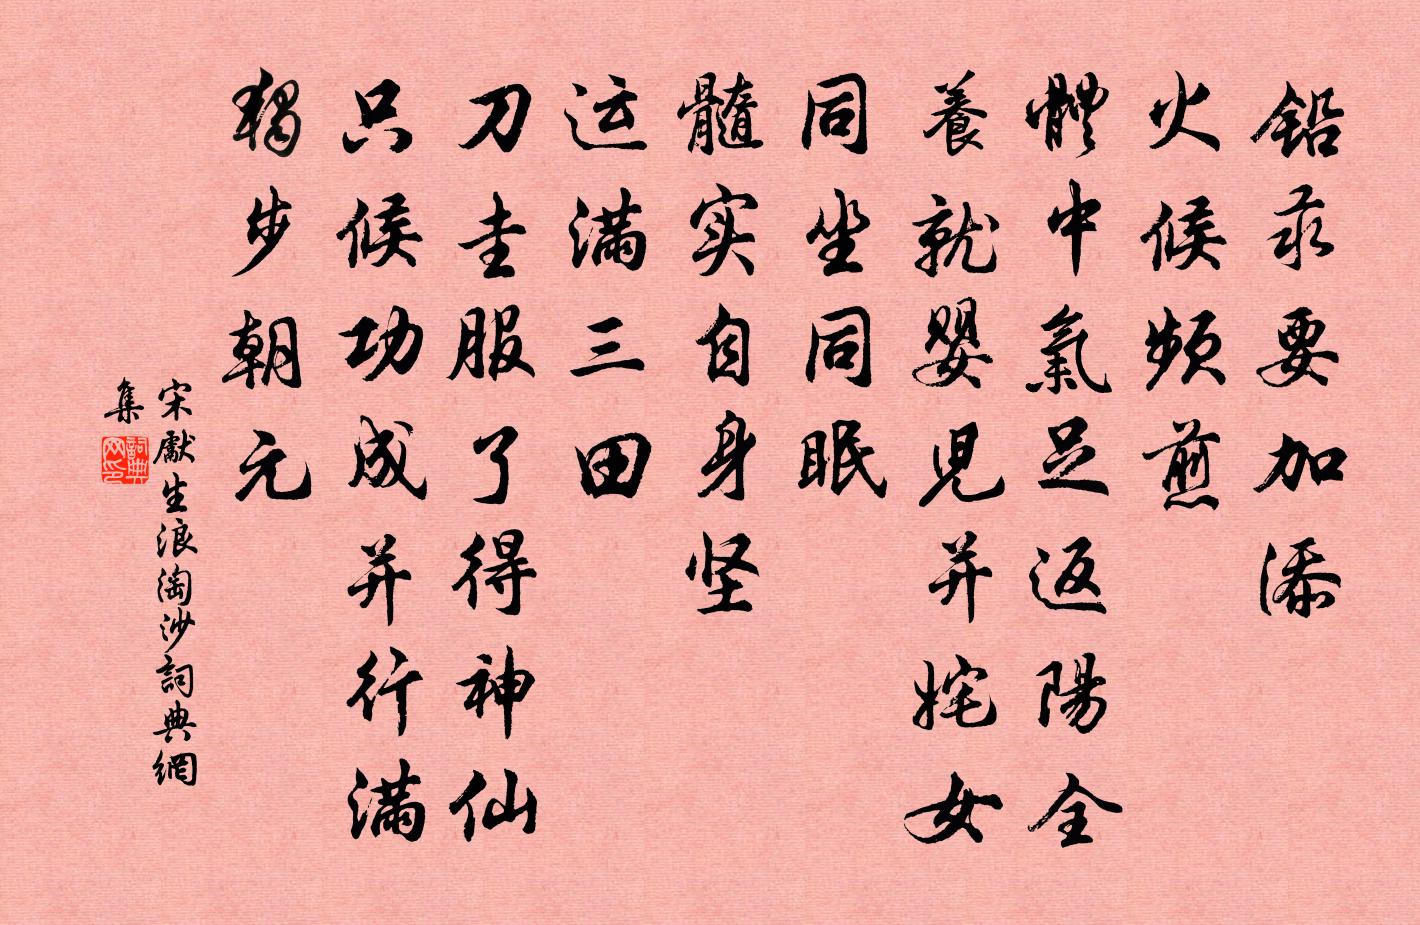 铅汞要加添
火候频煎
體中氣足返陽全
養就嬰児并姹女
同坐同眠
髓实自身坚
运满三田
刀圭服了得神仙
只候功成并行满
独步朝元
宋獻生浪淘沙詞典網
集
詞典网印